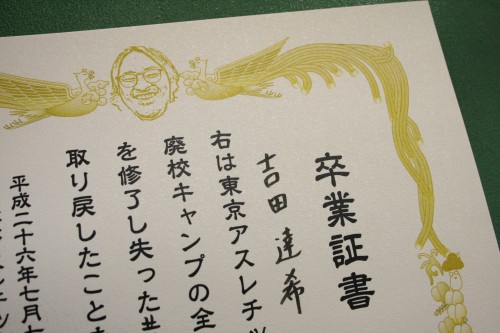 卒業証書
吉田達希
右は東京アスレチッ
廃校キャンプの全
を修了し失った
取り戻したこと
平成二十六年七月